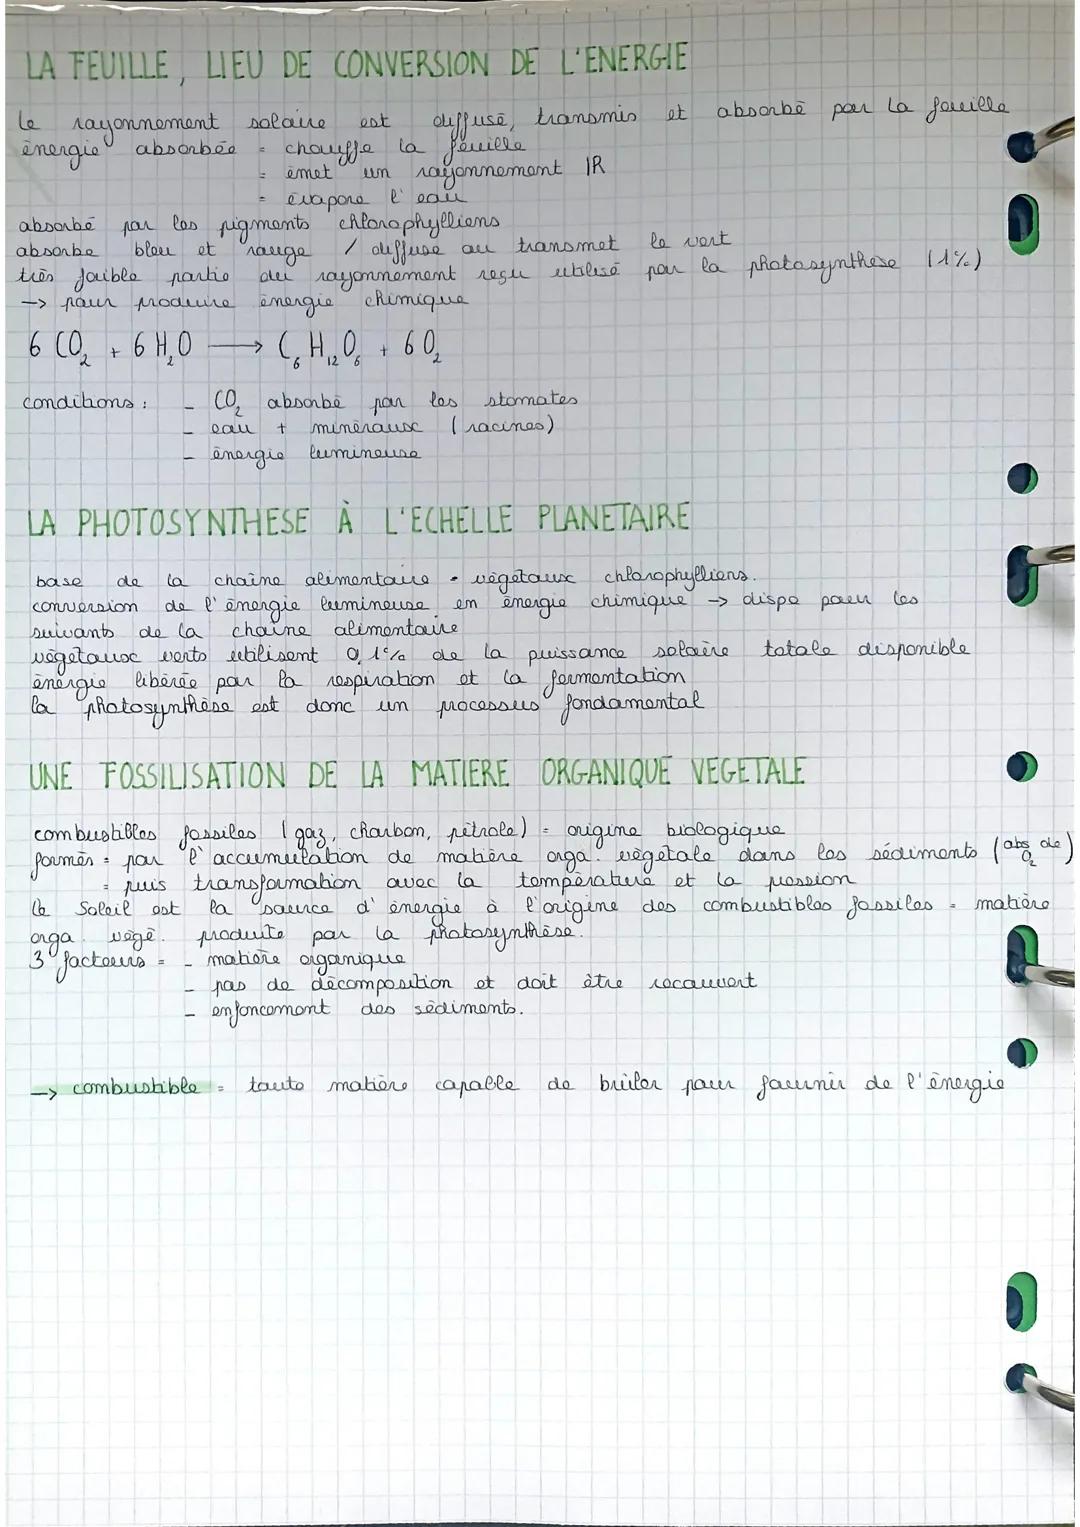 LA FEUILLE, LIEU DE CONVERSION DE L'ENERGIE
le rayonnement solaire est diffusé, transmis et absorbé par la feuille
énergie absorbée = chauffe la feuille
= émet un rayonnement IR
= évapore l'eau
absorbé par les pigments chlorophylliens
absorbe bleu et rouge / diffuse ou transmet le vert
très faible partie du rayonnement reçu utilisé par la photosynthèse (1%)
-> pour produire énergie chimique
6 CO₂ + 6 H₂O ⟶ C₆H₁₂O₆ + 6O₂
conditions : - CO₂ absorbé par les stomates
- eau + minéraux (racines)
- énergie lumineuse
LA PHOTOSYNTHESE À L'ECHELLE PLANETAIRE
base de la chaîne alimentaire = végétaux chlorophylliens.
conversion de l'énergie lumineuse en énergie chimique -> dispo pour les
suivants de la chaîne alimentaire
végétaux verts utilisent 0,1% de la puissance solaire totale disponible
énergie libérée par la respiration et la fermentation
la photosynthèse est donc un processus fondamental
UNE FOSSILISATION DE LA MATIERE ORGANIQUE VEGETALE
combustibles fossiles (gaz, charbon, pétrole) = origine biologique
formés = par l'accumulation de matière orga. végétale dans les sédiments (abs de O₂)
= puis transformation avec la température et la pression
le Soleil est la source d'énergie à l'origine des combustibles fossiles = matière
orga. végé. produite par la photosynthèse.
3 facteurs = - matière organique
- pas de décomposition et doit être recouvert
- enfoncement des sédiments.
-> combustible = toute matière capable de brûler pour fournir de l'énergie